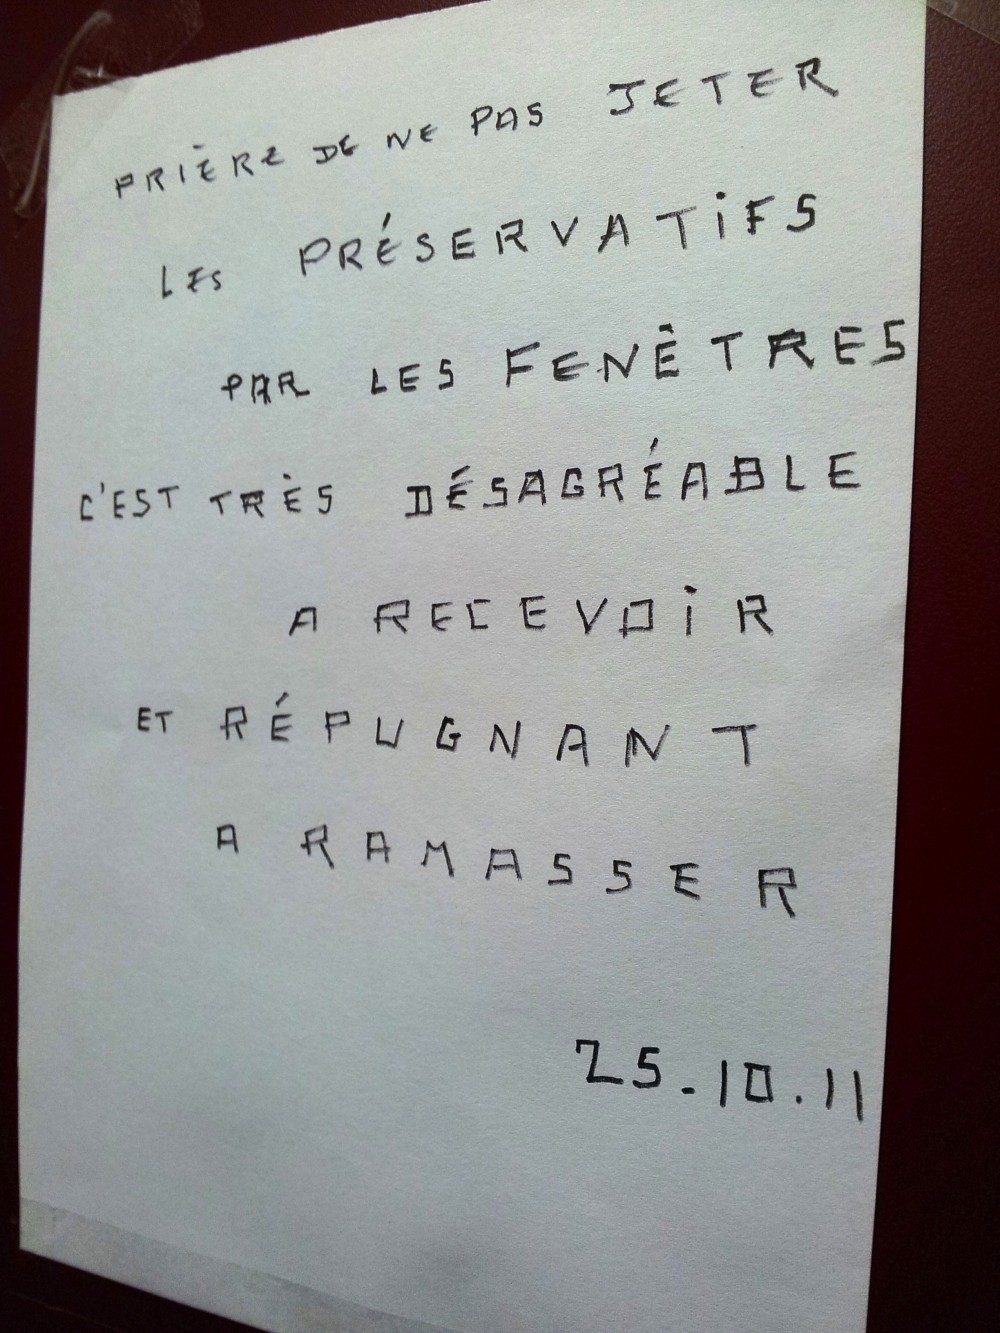 PRIÈRE DE NE PAS JETER
LES PRÉSERVATIFS
PAR LES FENÊTRES
C'EST TRÈS DÉSAGRÉABLE
A RECEVOIR
ET RÉPUGNANT
A RAMASSER
25.10.11